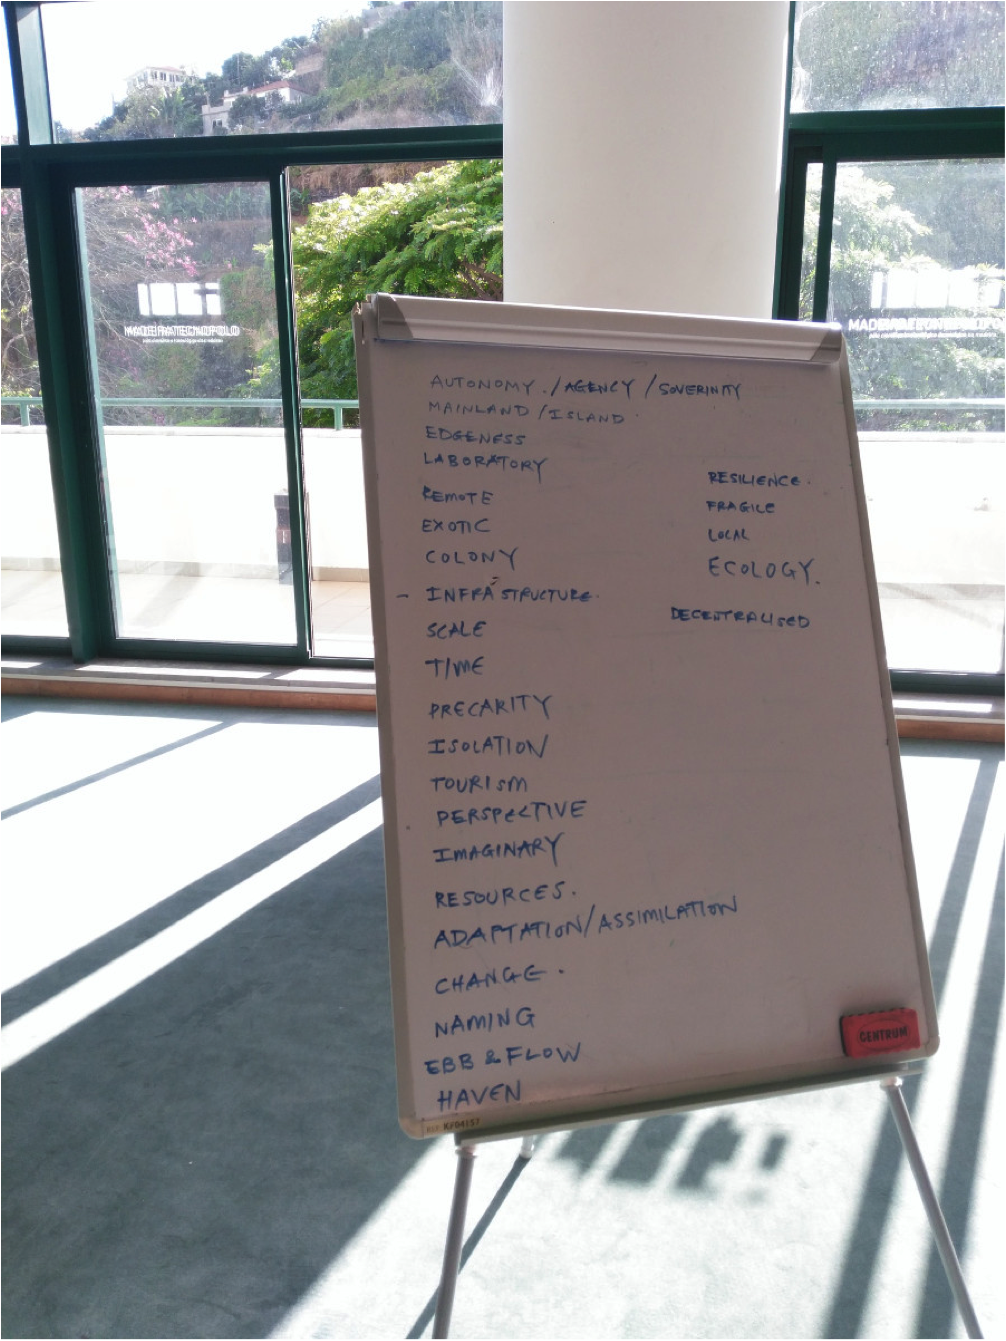 MADEIRATECNOPOLO
AUTONOMY ./AGENCY / SOVERINITY
MAINLAND / ISLAND
EDGENESS
LABORATORY
REMOTE
EXOTIC
COLONY
- INFRASTRUCTURE
SCALE
TIME
PRECARITY
ISOLATION
TOURISM
PERSPECTIVE
IMAGINARY
RESOURCES.
ADAPTATION/ASSIMILATION
CHANGE.
NAMING
EBB & FLOW
HAVEN
RESILIENCE.
FRAGILE
LOCAL
ECOLOGY.
DECENTRALISED
CENTRUM
REF. KF04157